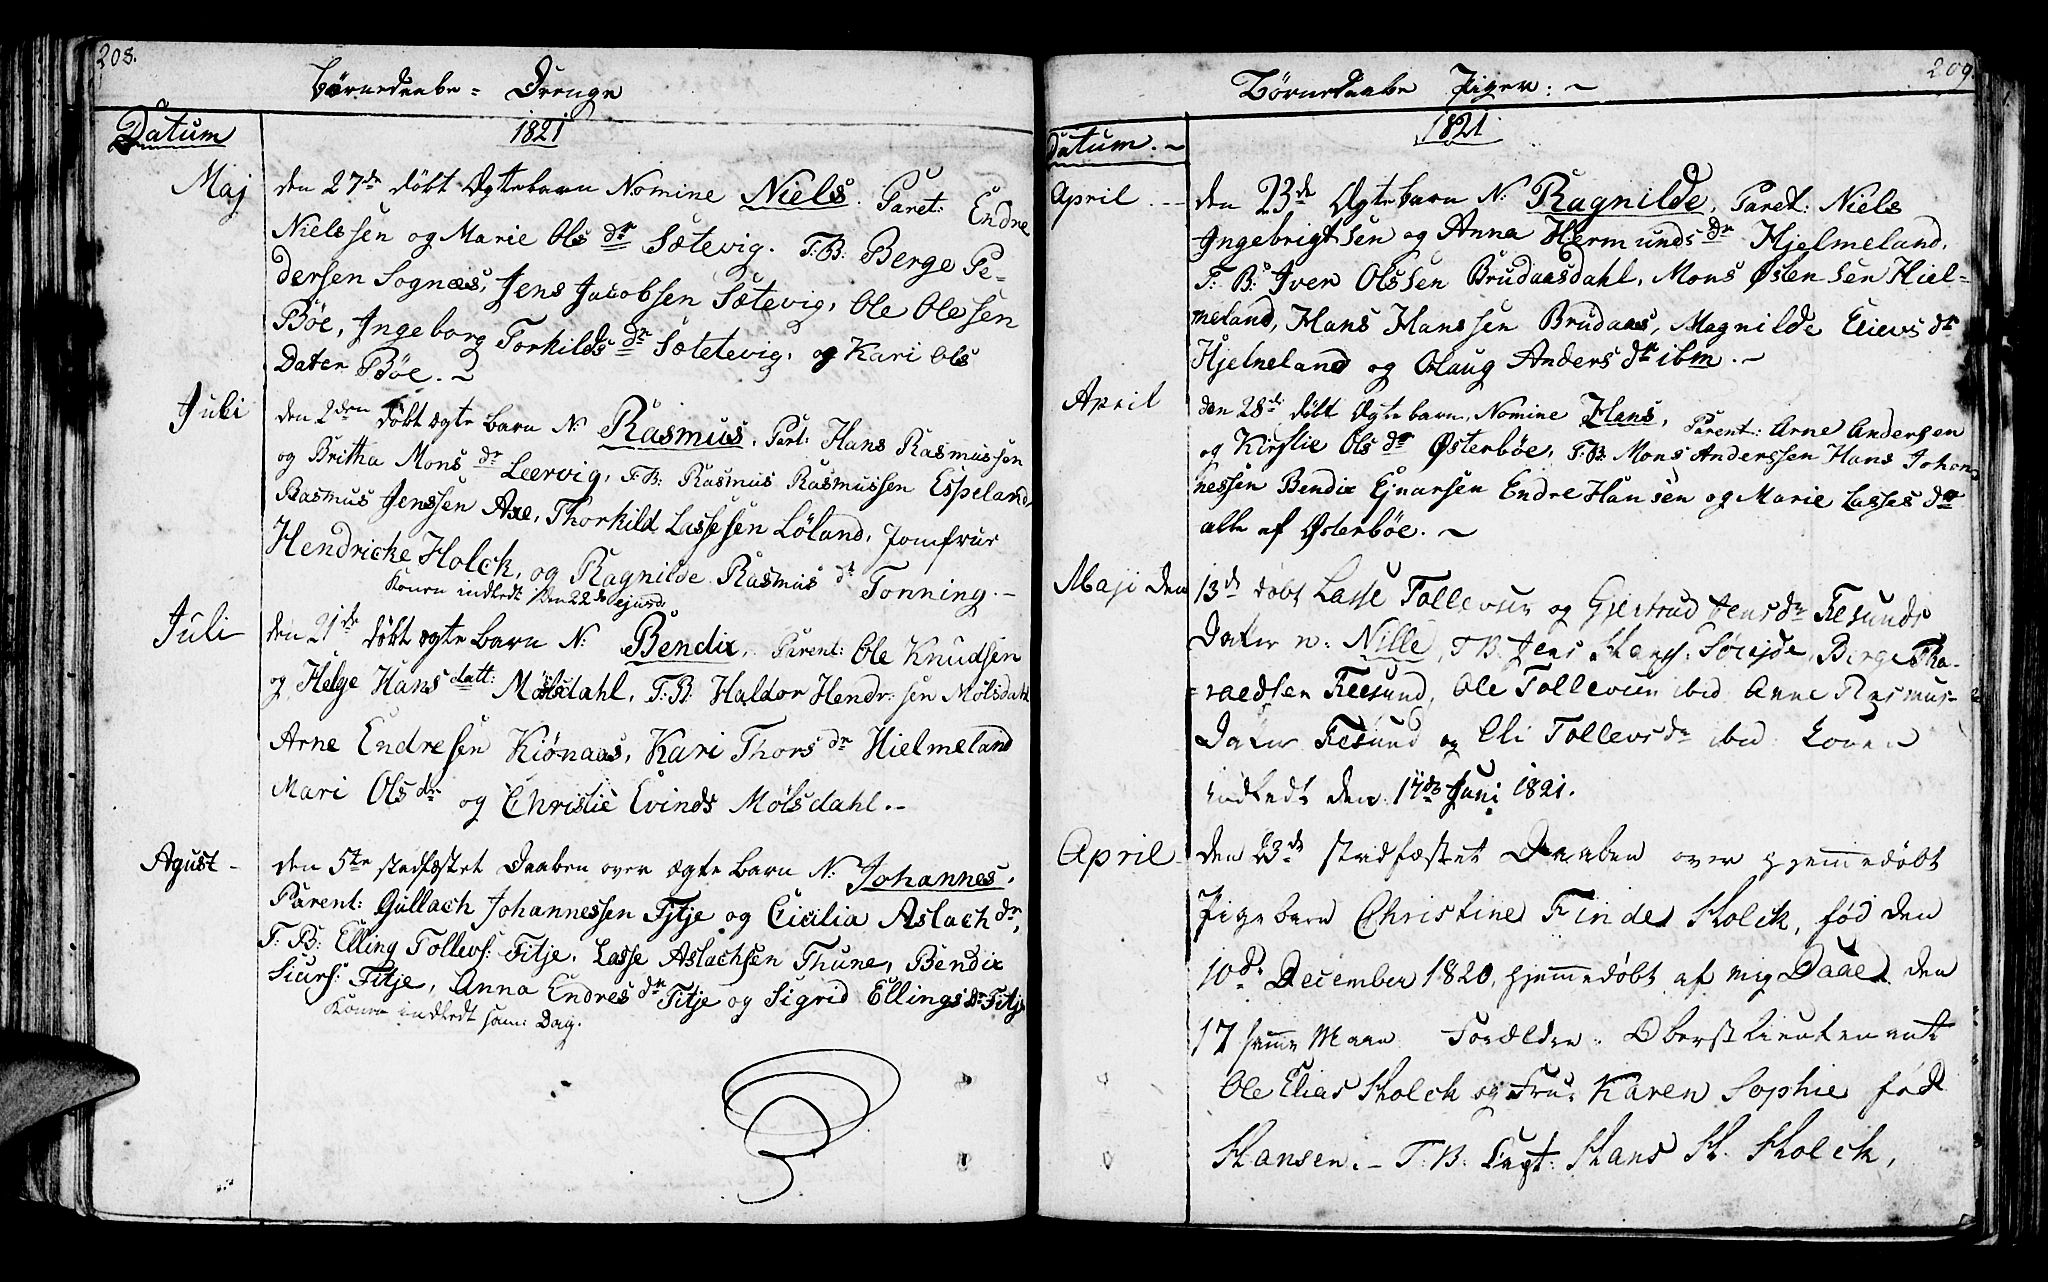 208.
Børnedaabe = Drenge
Datum 1821
Maj den 27de døbt Ægtebarn Nomine Niels. Paret: Endre
Nielssen og Marie Ols dr Sætevig. T:B: Berge Pe-
dersen Sognæs, Jens Jacobsen Sætevig, Ole Olessen
Böe, Ingeborg Torkilds dr Sætetevig, og Kari Ols
Dater Böe. ~
Juli den 2den døbt ægte Barn N: Rasmus, Part: Hans Rasmussen
og Britha Mons dr Leervig, T.B: Rasmus Rasmussen Espeland,
Rasmus Jenssen Aae, Thorkild Lassesen Löland, Jomfrue
Hendricke Holck, og Ragnilde Rasmus dr Tonning. -
Konen indledt den 22de ejusd
Juli den 21de døbt ægte Barn N: Bendix, Parent: Ole Knudsen
og Helge Hans datt: Mølsdahl, T:B: Haldor Hendr: sen Mölsdahl
Arne Endresen Kiønaas, Kari Thors dr Hielmeland
Mari Ols dr og Christie Evinds Mølsdahl. -
Agust - den 5te stadfæstet Daaben over ægte Barn N: Johannes,
Parent: Gullach Johannessen Fitje og Cicilia Aslach dr,
T: B: Elling Tollevs: Fitje, Lasse Aslachsen Thune, Bendix
Siurs: Fitje, Anna Endres dr Fitje og Sigrid Ellings dr Fitje
Konen indledt sam: Dag.
209
Børnedaabe Piger: ~
Datum. - 1821.
April. - den 23de Ægtebarn N: Ragnilde, Paret: Niels
Ingebrigtsen og Anna Hermunds dr Hjelmeland,
T: B: Iver Olssen Brudaasdahl, Mons Østensen Hiel=
meland, Hans Hanssen Brudaas, Magnilde Elievs dr
Hjelmeland og Olaug Anders dr ibm. ~
April den 28de døbt Ægtebarn, Nomine Hans, Parent: Arne Andersen
og Kirstie Ols dr Østerbøe, T.B: Mons Anderssen Hans Johan
nessen Bendix Ejnarsen Endre Hansen og Marie Lasses dr
alle af Østerböe. ~
Maji den 13de døbt Lasse Tollevsen og Gjertrud Jens dr Feesunds
Dater n: Nille, T.B. Jens Hans: Søreide, Berge Tha-
raldsen Feesund, Ole Tollevsen ibid Anne Rasmus-
Dater Feesund og Eli Tollevs dr ibid Konen
indledt den 17de Juni 1821.
April den 23de stadfæstet Daaben over hjemmedøbt
Pigebarn Christine Finde Holck, fød den
10de December 1820, hjemmedøbt af mig Daae den
17 samme Maan Forældre: Oberstlieutenant
Ole Elias Holck og Fru: Karen Sophie fød
Hansen. - T: B: Capt: Hans H. Holck,